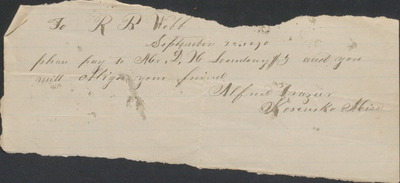 To R B Webb
September
please pay to Mr. J. H. and you
will oblige your friend
Alfred Frazier
Kosciusko Miss